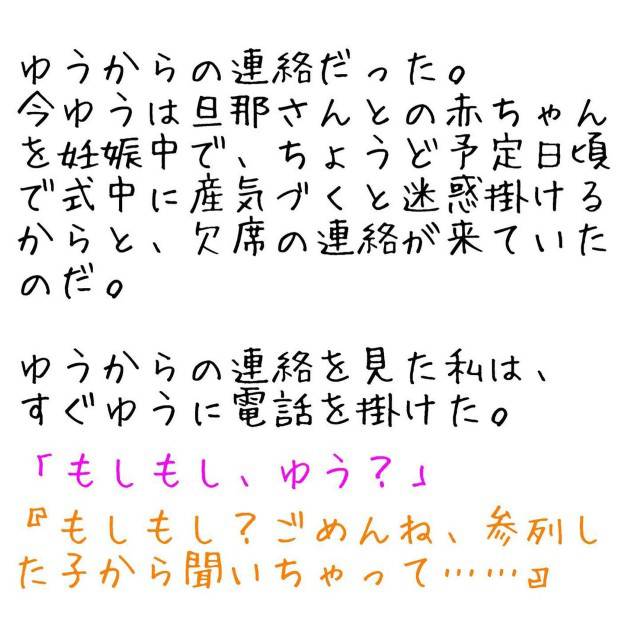 ゆうからの連絡だった。
今ゆうは旦那さんとの赤ちゃん
を妊娠中で、ちょうど予定日頃
で式中に産気づくと迷惑掛ける
からと、欠席の連絡が来ていた
のだ。
ゆうからの連絡を見た私は、
すぐゆうに電話を掛けた。
「もしもし、ゆう？」
『もしもし？ごめんね、参列し
た子から聞いちゃって……』